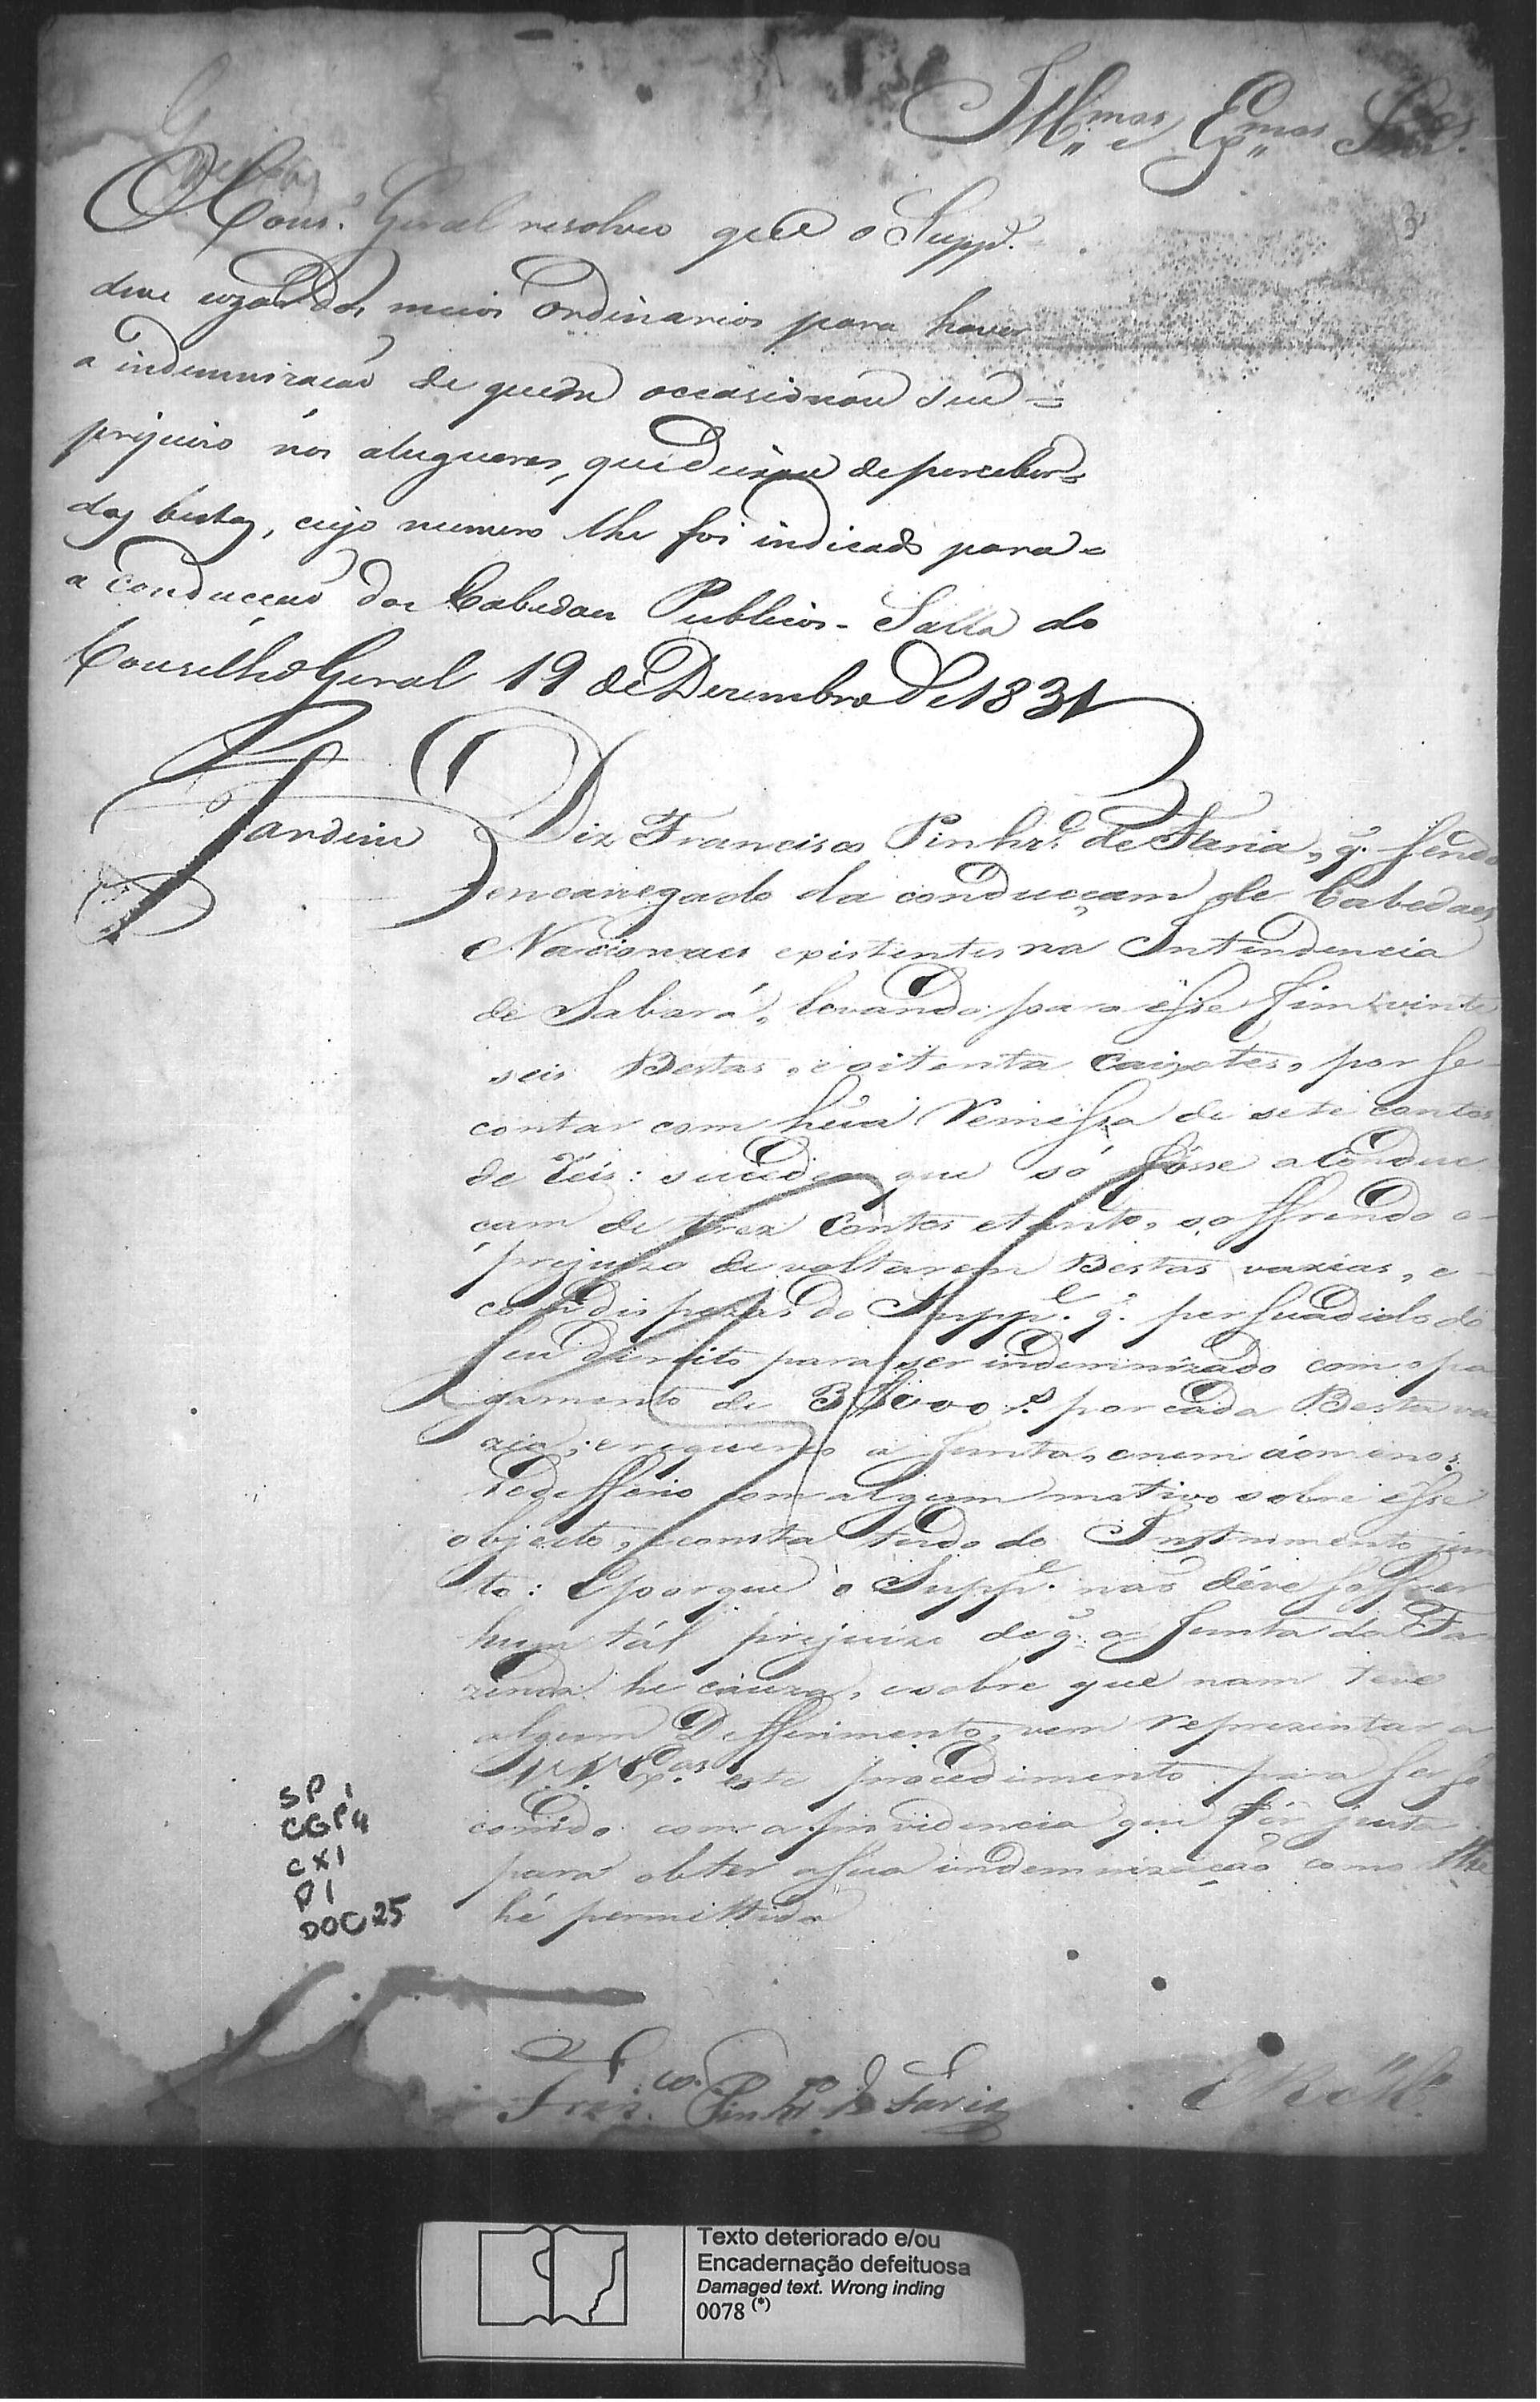 Illmos e Exmos Snres.
O Cons.o Geral resolveo que o Supp.e
deve uzar dos meios Ordinarios para haver
a indemnização de quem occasionou seu =
prejuizo nos alugueres, que deixou de perceber =
das bestas, cujo numero lhe foi indicado para =
a conducção dos Cabedaes Publicos - Salla do
Conselho Geral 19 de Dezembro de 1831
Jardim
Diz Francisco Pinhr.o de Faria, q. sendo
encarregado da conducçam de Cabedaes
Nacionaes existentes na Intendencia
de Sabará, levando para esse fim vinte
seis Bestas, e oitenta caixotes, por se
contar com hũa Remessa de sete contos
de Reis: succedeu que só fôsse a Conduc
çam de trez Contos e tanto, soffrendo o
prejuizo de voltarem Bestas vazias, e
com dispezas do Supp.e q. persuadido do
seu direito para ser indemnizado com o pa
gamento de 3$600 r.s por cada Besta va
zia, requereo á Junta, e nem ao menos
Defferio com algum motivo sobre esse
objecto, e consta tudo do Instrumento jun
to: E porque o Supp.e nao deve soffrer
hum tál prejuizo de q. a Junta da Fa
zenda he cauza, e sobre que nam teve
algum Defferimento, vem representar a
V.V. Ex.as este procedimento para ser so
corrido com a providencia que fôr justa
para obter a sua indemnização como lhe
hé permittido
SP 1
CGP4
CX1
P1
DOC 25
Fran.co Pinhr.o de Faria
E R M.ce
Texto deteriorado e/ou
Encadernação defeituosa
Damaged text. Wrong inding
0078 (*)